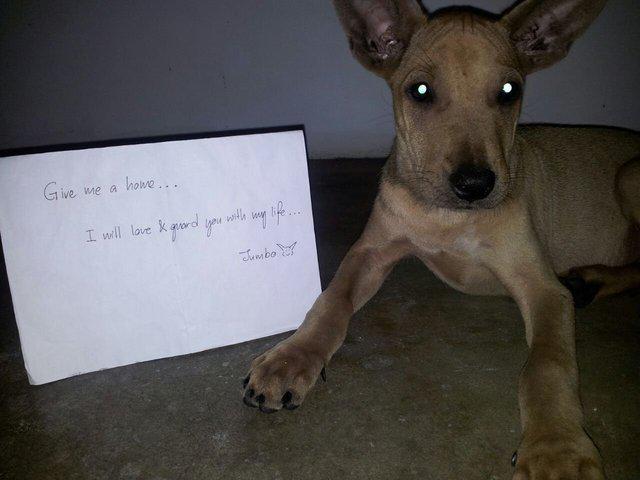 Give me a home...
I will love & guard you with my life...
Jumbo